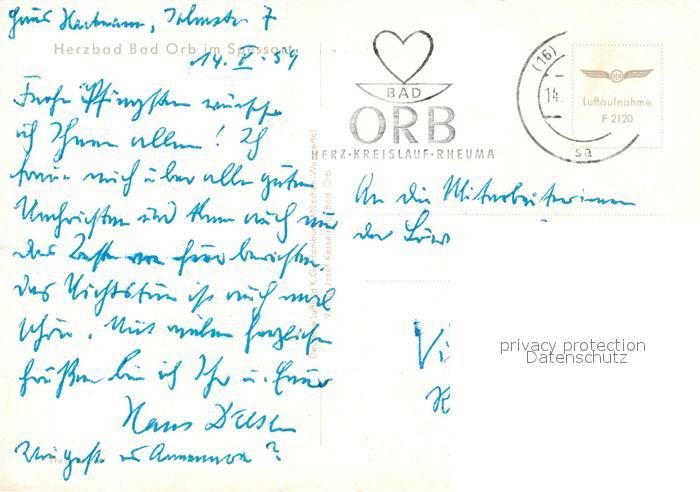 Haus Hartmann, 7
Herzbad Bad Orb im Spessart
14. V. 59
Frohe Pfingsten wünsche
ich Ihnen allen! Ich
freue mich über alle guten
Nachrichten und kann auch nur
das Beste von hier berichten.
Das Nichtstun ist auch mal
schön. Mit vielen herzlichen
Grüßen bin ich Ihr u. Euer
Hans
Wie geht es Annemarie?
BAD
ORB
HERZ·KREISLAUF·RHEUMA
(16)
14.
sa
Luftaufnahme
F 2120
An die Mitarbeiterinnen
der
privacy protection
Datenschutz